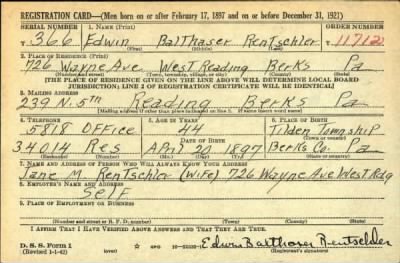 REGISTRATION CARD—(Men born on or after February 17, 1897 and on or before December 31, 1921)
SERIAL NUMBER 1. NAME (Print) ORDER NUMBER
366 Edwin Balthaser Rentschler 11712
(First) (Middle) (Last)
2. PLACE OF RESIDENCE (Print)
726 Wayne Ave West Reading Berks Pa
(Number and street) (Town, township, village, or city) (County) (State)
[THE PLACE OF RESIDENCE GIVEN ON THE LINE ABOVE WILL DETERMINE LOCAL BOARD
JURISDICTION; LINE 2 OF REGISTRATION CERTIFICATE WILL BE IDENTICAL]
3. MAILING ADDRESS
239 N. 5th Reading Berks Pa
(Mailing address if other than place indicated on line 2. If same insert word same)
4. TELEPHONE 5. AGE IN YEARS 6. PLACE OF BIRTH
5818 Office 44 Tilden Township
DATE OF BIRTH (Town or county)
34014 Res April 20 1897 Berks Co. Pa
(Mo.) (Day) (Yr.) (State or country)
7. NAME AND ADDRESS OF PERSON WHO WILL ALWAYS KNOW YOUR ADDRESS
Jane M. Rentschler (wife) 726 Wayne Ave West Rdg
8. EMPLOYER'S NAME AND ADDRESS
Self
9. PLACE OF EMPLOYMENT OR BUSINESS
(Number and street or R. F. D. number) (Town) (County) (State)
I AFFIRM THAT I HAVE VERIFIED ABOVE ANSWERS AND THAT THEY ARE TRUE.
D. S. S. Form 1
(Revised 1-1-42) GPO Edwin Balthaser Rentschler
(Registrant's signature)